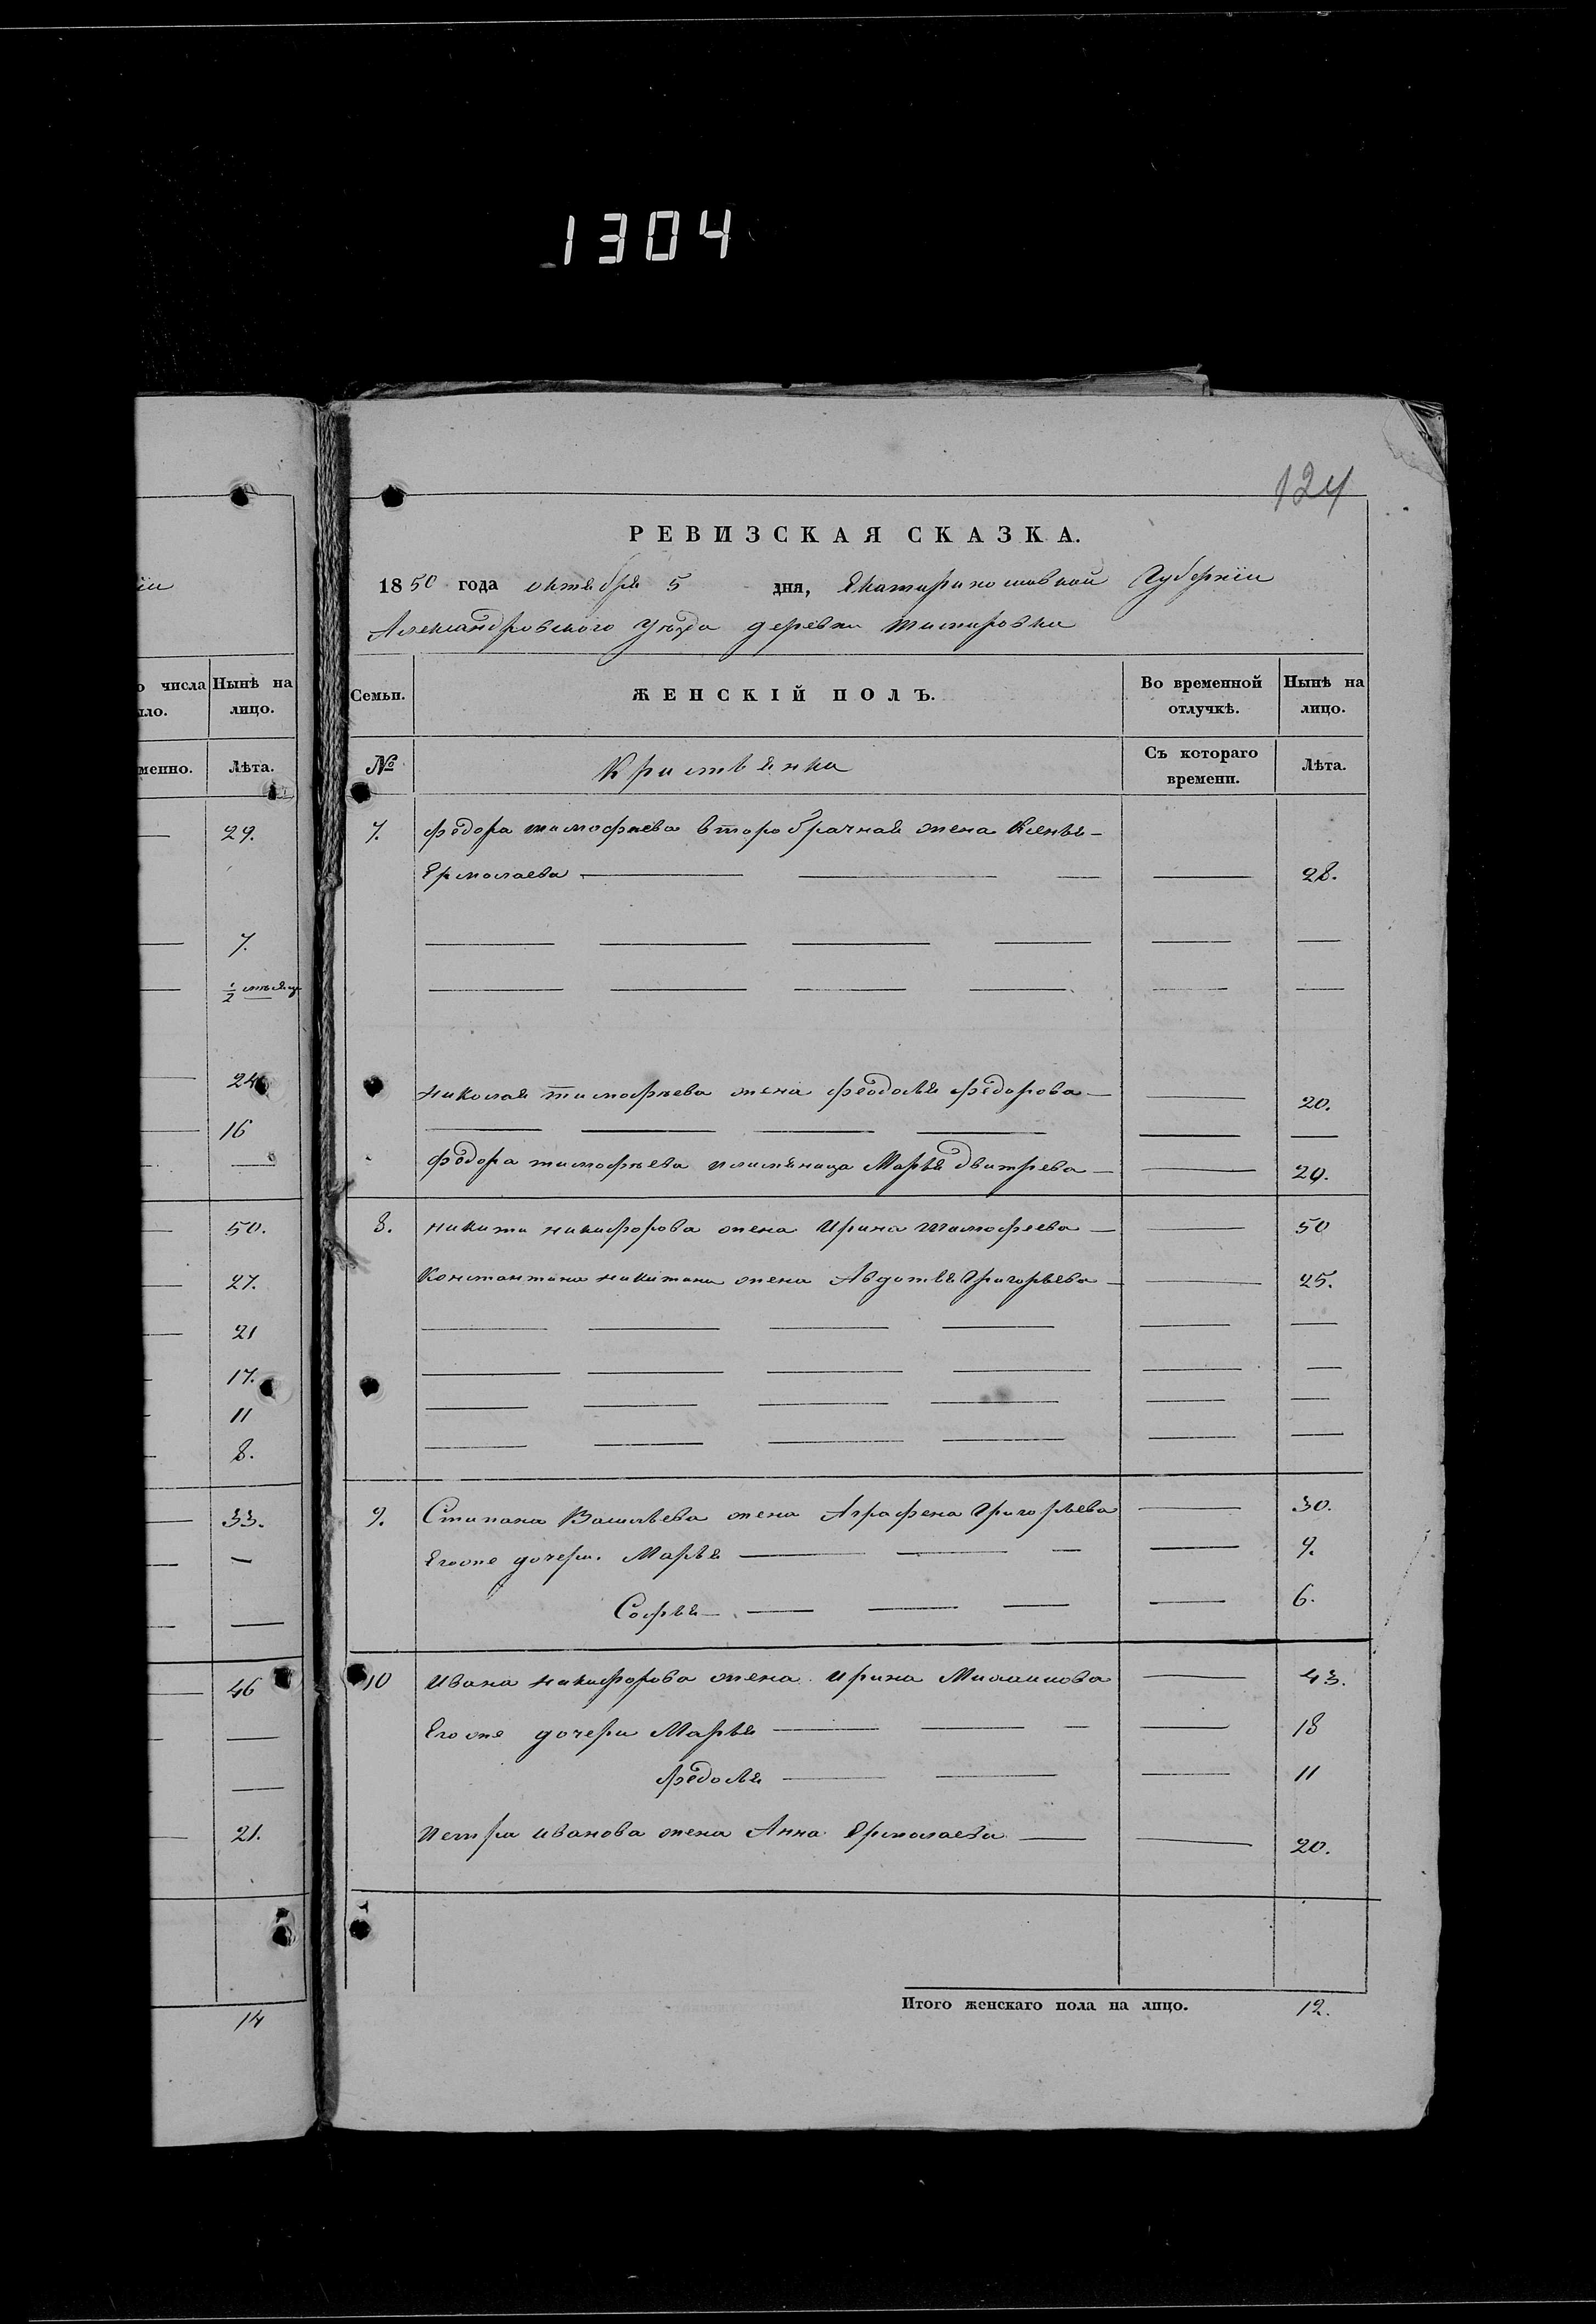 1304
124
РЕВИЗСКАЯ СКАЗКА.
1850 года октября 5 дня, Екатериносшовской Губернiи
Александровского уѣзда деревни Тимировки
Семьи.
ЖЕНСКIЙ ПОЛЪ.
Во временной отлучкѣ.
Нынѣ на лицо.
№
Съ котораго времени.
Лѣта.
7. федора тимофѣева второбрачная жена Ксенья
Ермолаева 28.
николая тимофѣева жена феодосья федорова 20.
федора тимофѣева племяница Марья двитрева 29.
8. никити никифорова жена Ирина тимофеева 50
Константина никитина жена Авдотья Григорьева 25.
9. Стипана Васильева жена Аграфена Григорьева 30.
Егоже дочери. Марья 9.
Софья 6.
10 Ивана никифорова жена ирина Михаилова 43.
Егоже дочери Марья 18
федосья 11
Петра иванова жена Анна Ермолаева 20.
Итого женскаго пола на лицо. 12.
iи
числа
Нынѣ на лицо.
ло.
менно.
Лѣта.
29.
7.
1/2 мѣсяц
24
16
50.
27.
21
17.
11
8.
33.
46
21.
14